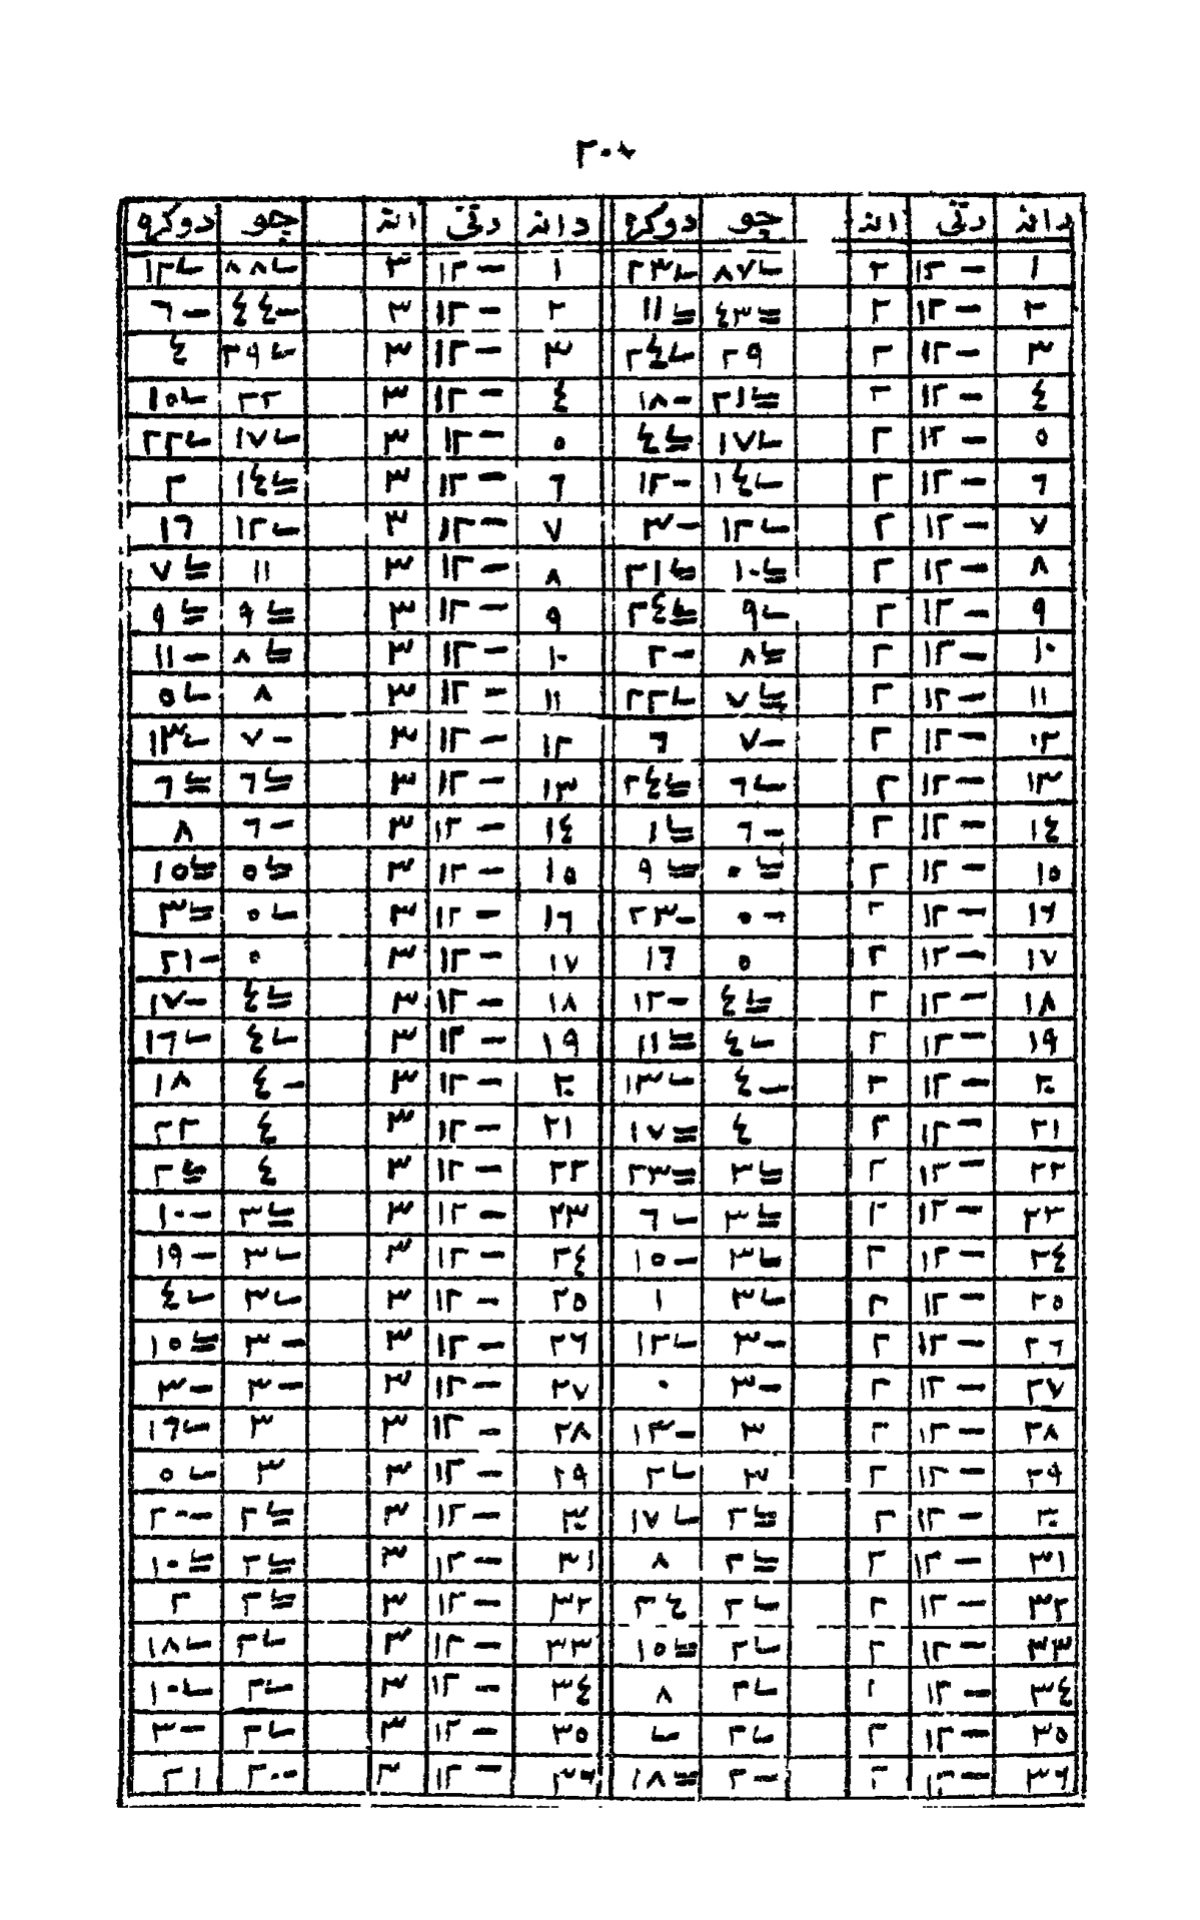 دانه رتی انه چو دوكره دانه رتی انه چو دوكره
١ ١٢- ٢ ٨٧ ٢٣ ١ ١٢- ٣ ٨٨ ١٢
٢ ١٢- ٢ ٤٣ ١١ ٢ ١٢- ٣ ٤٤- ٦-
٣ ١٢- ٢ ٢٩ ٢٤ ٣ ١٢- ٣ ٢٩ ٤
٤ ١٢- ٢ ٢١ ١٨- ٤ ١٢- ٣ ٢٢ ١٥
٥ ١٢- ٢ ١٧ ٤ ٥ ١٢- ٣ ١٧ ٢٢
٦ ١٢- ٢ ١٤ ١٢- ٦ ١٢- ٣ ١٤ ٢
٧ ١٢- ٢ ١٢ ٣- ٧ ١٢- ٣ ١٢ ١٦
٨ ١٢- ٢ ١٠ ٢١ ٨ ١٢- ٣ ١١ ٧
٩ ١٢- ٢ ٩ ٢٤ ٩ ١٢- ٣ ٩ ٩
١٠ ١٢- ٢ ٨ ٢- ١٠ ١٢- ٣ ٨ ١١-
١١ ١٢- ٢ ٧ ٢٢ ١١ ١٢- ٣ ٨ ٥
١٢ ١٢- ٢ ٧- ٦ ١٢ ١٢- ٣ ٧- ١٣
١٣ ١٢- ٢ ٦ ٢٤ ١٣ ١٢- ٣ ٦ ٦
١٤ ١٢- ٢ ٦- ١ ١٤ ١٢- ٣ ٦- ٨
١٥ ١٢- ٢ ٥ ٩ ١٥ ١٢- ٣ ٥ ١٥
١٦ ١٢- ٢ ٥- ٢٣- ١٦ ١٢- ٣ ٥ ٣
١٧ ١٢- ٢ ٥ ١٦ ١٧ ١٢- ٣ ٥ ٢١-
١٨ ١٢- ٢ ٤ ١٢- ١٨ ١٢- ٣ ٤ ١٧-
١٩ ١٢- ٢ ٤ ١١ ١٩ ١٢- ٣ ٤ ١٦
٢٠ ١٢- ٢ ٤- ١٣ ٢٠ ١٢- ٣ ٤- ١٨
٢١ ١٢- ٢ ٤ ١٧ ٢١ ١٢- ٣ ٤ ٢٢
٢٢ ١٢- ٢ ٣ ٢٣ ٢٢ ١٢- ٣ ٤ ٢
٢٣ ١٢- ٢ ٣ ٦ ٢٣ ١٢- ٣ ٣ ١٠-
٢٤ ١٢- ٢ ٣ ١٥- ٢٤ ١٢- ٣ ٣ ١٩-
٢٥ ١٢- ٢ ٣ ١ ٢٥ ١٢- ٣ ٣ ٤
٢٦ ١٢- ٢ ٣- ١٢ ٢٦ ١٢- ٣ ٣- ١٥
٢٧ ١٢- ٢ ٣- ٠ ٢٧ ١٢- ٣ ٣- ٣-
٢٨ ١٢- ٢ ٣ ١٣- ٢٨ ١٢- ٣ ٣ ١٦
٢٩ ١٢- ٢ ٣ ٢ ٢٩ ١٢- ٣ ٣ ٥
٣٠ ١٢- ٢ ٢ ١٧ ٣٠ ١٢- ٣ ٢ ٢٠-
٣١ ١٢- ٢ ٢ ٨ ٣١ ١٢- ٣ ٢ ١٠
٣٢ ١٢- ٢ ٢ ٢٤ ٣٢ ١٢- ٣ ٢ ٢
٣٣ ١٢- ٢ ٢ ١٥ ٣٣ ١٢- ٣ ٢ ١٨
٣٤ ١٢- ٢ ٢ ٨ ٣٤ ١٢- ٣ ٢ ١٠
٣٥ ١٢- ٢ ٢ ٣٥ ١٢- ٣ ٢ ٣-
٣٦ ١٢- ٢ ٢- ١٨ ٣٦ ١٢- ٣ ٢- ٢١